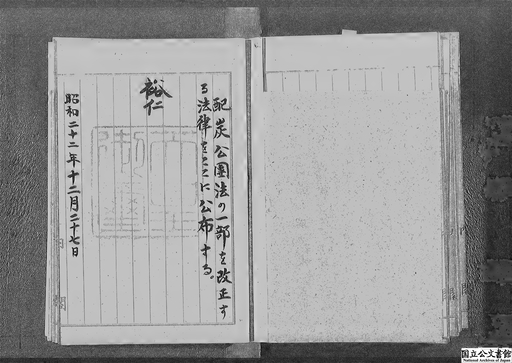 配炭公團法の一部を改正す
る法律をここに公布する。
裕仁
昭和二十二年十二月二十七日
国立公文書館
National Archives of Japan